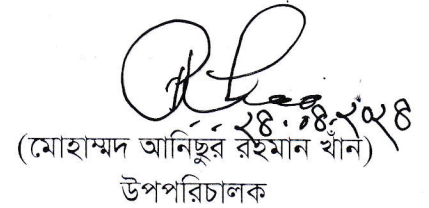 ২৪.০৪.২০২৪
(মোহাম্মদ আনিছুর রহমান খাঁন)
উপপরিচালক